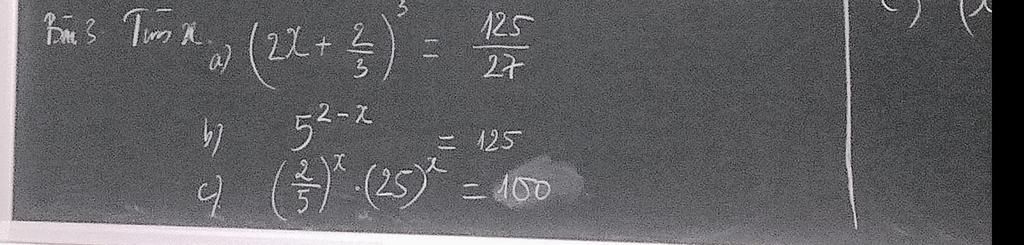 Bài 3 Tìm x.
a) (2x + 2/3)³ = 125/27
b) 5^{2-x} = 125
c) (2/5)^x · (25)^x = 100